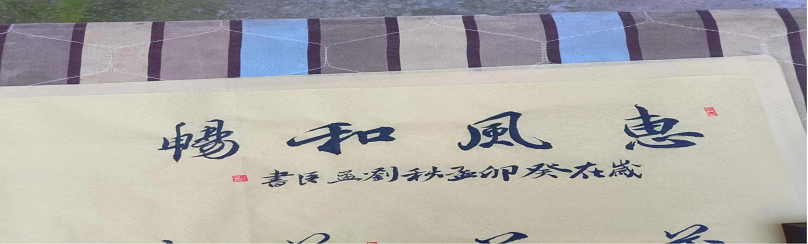 惠風和暢
歲在癸卯孟秋劉孟臣書